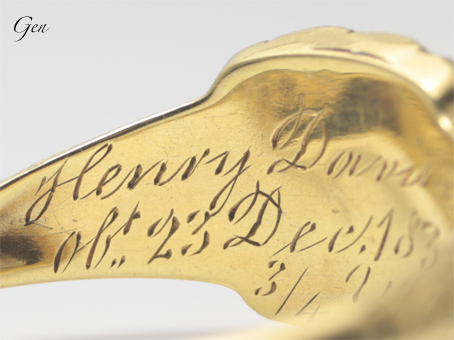 Gen
Henry
obt. 23 Dec. 183
3/4